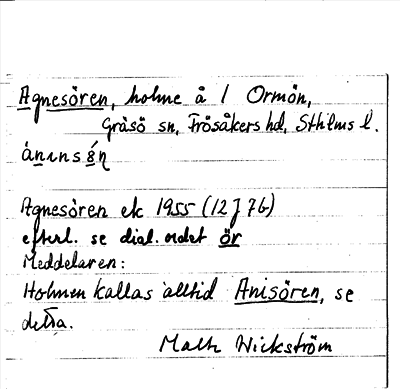 Agnesören, holme å / Ormön,
Gräsö sn, Frösåkers hd, Sthlms l.
Agnesören ek 1955 (12 J 7b)
efterl. se dial. ordet ör
Meddelaren:
Holmen kallas alltid Anisören, se
detta.
Mats Wickström